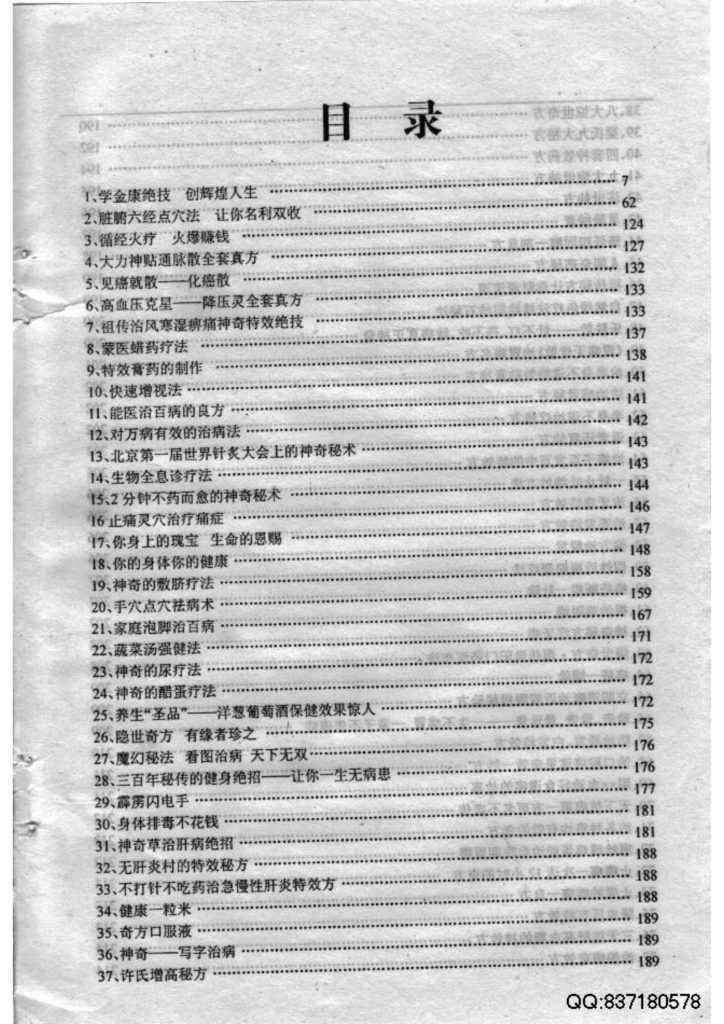 目 录
1、学金康绝技 创辉煌人生 ……… 7
2、脏腑六经点穴法 让你名利双收 ……… 62
3、循经火疗 火爆赚钱 ……… 124
4、大力神贴通脉散全套真方 ……… 127
5、见癌就散——化癌散 ……… 132
6、高血压克星——降压灵全套真方 ……… 133
7、祖传治风寒湿痹痛神奇特效绝技 ……… 133
8、蒙医蜡药疗法 ……… 137
9、特效膏药的制作 ……… 138
10、快速增视法 ……… 141
11、能医治百病的良方 ……… 141
12、对万病有效的治病法 ……… 142
13、北京第一届世界针炙大会上的神奇秘术 ……… 143
14、生物全息诊疗法 ……… 143
15、2分钟不药而愈的神奇秘术 ……… 144
16止痛灵穴治疗痛症 ……… 146
17、你身上的瑰宝 生命的恩赐 ……… 147
18、你的身体你的健康 ……… 148
19、神奇的敷脐疗法 ……… 158
20、手穴点穴祛病术 ……… 159
21、家庭泡脚治百病 ……… 167
22、蔬菜汤强健法 ……… 171
23、神奇的尿疗法 ……… 172
24、神奇的醋蛋疗法 ……… 172
25、养生“圣品”——洋葱葡萄酒保健效果惊人 ……… 172
26、隐世奇方 有缘者珍之 ……… 175
27、魔幻秘法 看图治病 天下无双 ……… 176
28、三百年秘传的健身绝招——让你一生无病患 ……… 176
29、霹雳闪电手 ……… 177
30、身体排毒不花钱 ……… 181
31、神奇草治肝病绝招 ……… 181
32、无肝炎村的特效秘方 ……… 188
33、不打针不吃药治急慢性肝炎特效方 ……… 188
34、健康一粒米 ……… 188
35、奇方口服液 ……… 189
36、神奇——写字治病 ……… 189
37、许氏增高秘方 ……… 189
QQ:837180578